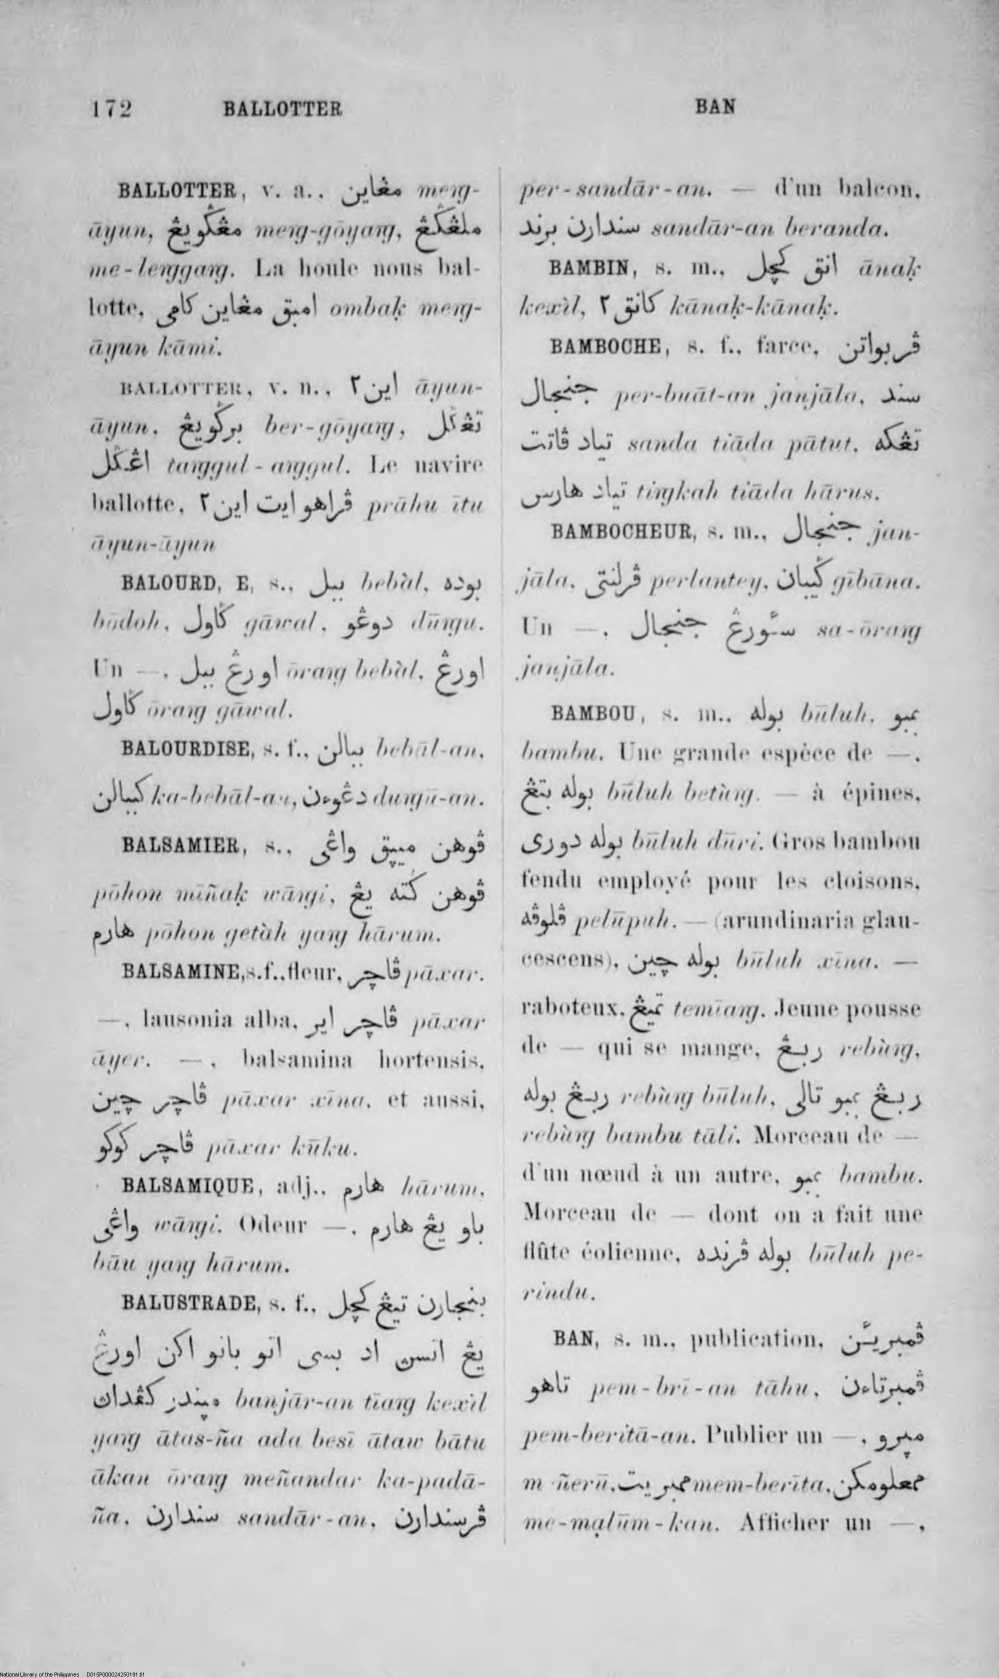 172 BALLOTTER BAN
BALLOTTER, v. a., مڠاين meŋg-
āyun, مڠݢويڠ meŋg-gōyaŋ, ملڠݢڠ
me-leŋggaŋ. La houle nous bal-
lotte, امبق مڠاين كامي ombaḳ meŋg-
āyun kāmi.
BALLOTTER, v. n., اين٢ āyun-
āyun, برݢويڠ ber-gōyaŋ, تڠݢل
اڠݢل taŋggul-aŋggul. Le navire
ballotte, ڤراهو ايت اين٢ prāhu ītu
āyun-āyun
BALOURD, E, s., ببل bebàl, بوده
bōdoh, ݢاول gāwal, دوڠو dūŋgu.
Un —, اورڠ ببل ōraŋ bebàl, اورڠ
ݢاول ōraŋ gāwal.
BALOURDISE, s. f., ببالن bebāl-an,
كببالن ka-bebāl-an, دڠوءن duŋgū-an.
BALSAMIER, s., ڤوهن مييق واڠي
pōhon miñaḳ wāŋgi, ڤوهن ݢته يڠ
هارم pōhon getàh yaŋ hārum.
BALSAMINE, s. f., fleur, ڤاچر pāxar.
—, lausonia alba, ڤاچر اير pāxar
āyer. —, balsamina hortensis,
ڤاچر چين pāxar xīna, et aussi,
ڤاچر كوكو pāxar kūku.
BALSAMIQUE, adj., هارم hārum,
واڠي wāŋgi. Odeur —, باو يڠ هارم
bāu yaŋ hārum.
BALUSTRADE, s. f., بنجارن تيڠ كچل
يڠ اتسن اد بسي اتو باتو اكن اورڠ
ميندر كڤداڽ banjār-an tīaŋ kexìl
yaŋ ātas-ña ada besī ātaw bātu
ākan ōraŋ meñandar ka-padā-
ña, سندارن sandār-an, ڤرسندارن
per-sandār-an. — d'un balcon,
سندارن برند sandār-an beranda.
BAMBIN, s. m., انق كچل ānaḳ
kexìl, كانق٢ kānaḳ-kānaḳ.
BAMBOCHE, s. f., farce, ڤربواتن
جنجال per-buāt-an janjāla, سند
تياد ڤاتت sanda tiāda pātut, تڠكه
تياد هارس tiŋkah tiāda hārus.
BAMBOCHEUR, s. m., جنجال jan-
jāla, ڤرلنتي perlantey, ݢيبان gībāna.
Un —, سئورڠ جنجال sa-ōraŋ
janjāla.
BAMBOU, s. m., بوله būluh, بمبو
bambu. Une grande espèce de —,
بوله بتڠ būluh betùŋ. — à épines,
بوله دوري būluh dūri. Gros bambou
fendu employé pour les cloisons,
ڤلوڤه pelūpuh. — (arundinaria glau-
cescens), بوله چين būluh xīna. —
raboteux, تميڠ temīaŋ. Jeune pousse
de — qui se mange, ربڠ rebùŋ,
ربڠ بوله rebùŋ būluh, ربڠ بمبو تالي
rebùŋ bambu tāli. Morceau de —
d'un nœud à un autre, بمبو bambu.
Morceau de — dont on a fait une
flûte éolienne, بوله ڤرنده būluh pe-
rindu.
BAN, s. m., publication, ڤمبريئن
تاهو pem-brī-an tāhu, ڤمبرتاءن
pem-beritā-an. Publier un —, ميرو
m ñerū, ممبريت mem-berīta, ممعلومكن
me-maļūm-kan. Afficher un —,
National Library of the Philippines